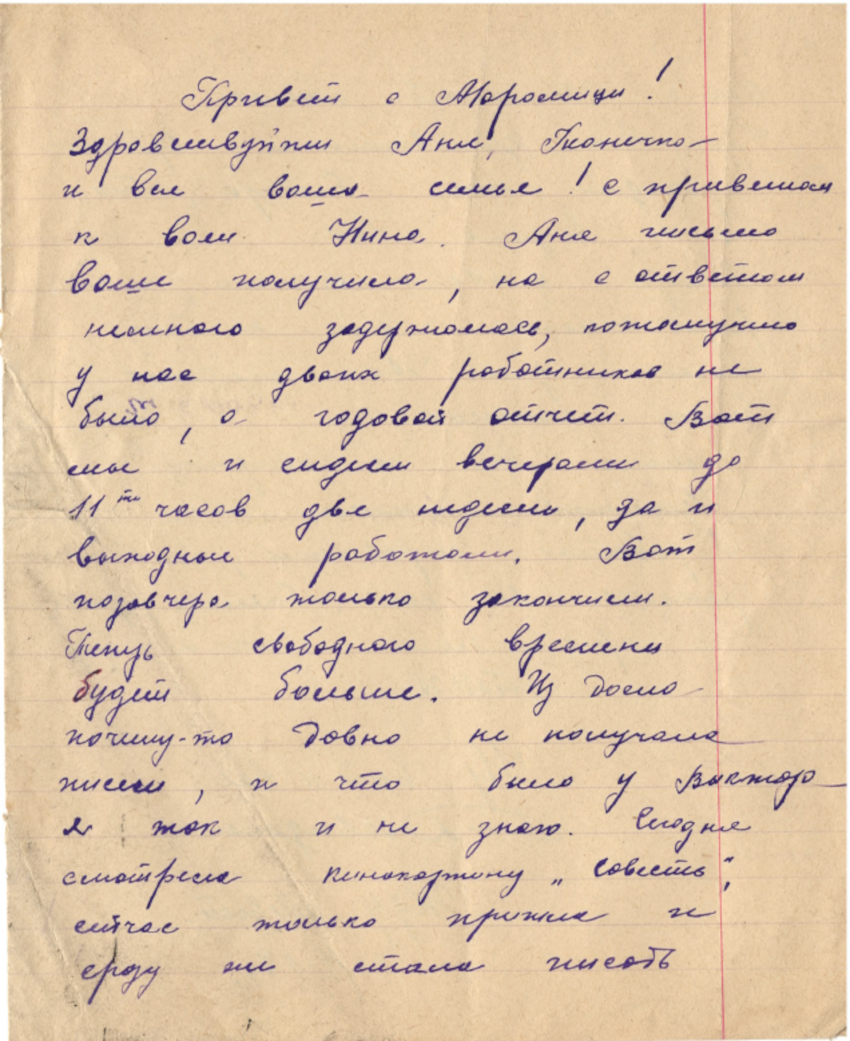 Привет с Маромицы!
Здравствуйте Аня, Танечка
и вся ваша семья! С приветом
к вам Нина. Аня письмо
ваше получила, но с ответом
немного задержалась, потомучто
у нас двоих работников не
было, а годовой отчет. Вот
мы и сидели вечерами до
11ти часов две недели, да и
выходные работали. Вот
позавчера только закончили.
Теперь свободного времени
будет больше. Из дома
почему-то давно не получала
писем, и что было у Виктора
я так и не знаю. Сегодня
смотрела кинокартину „Совесть",
сейчас только пришла и
сразу же стала писать